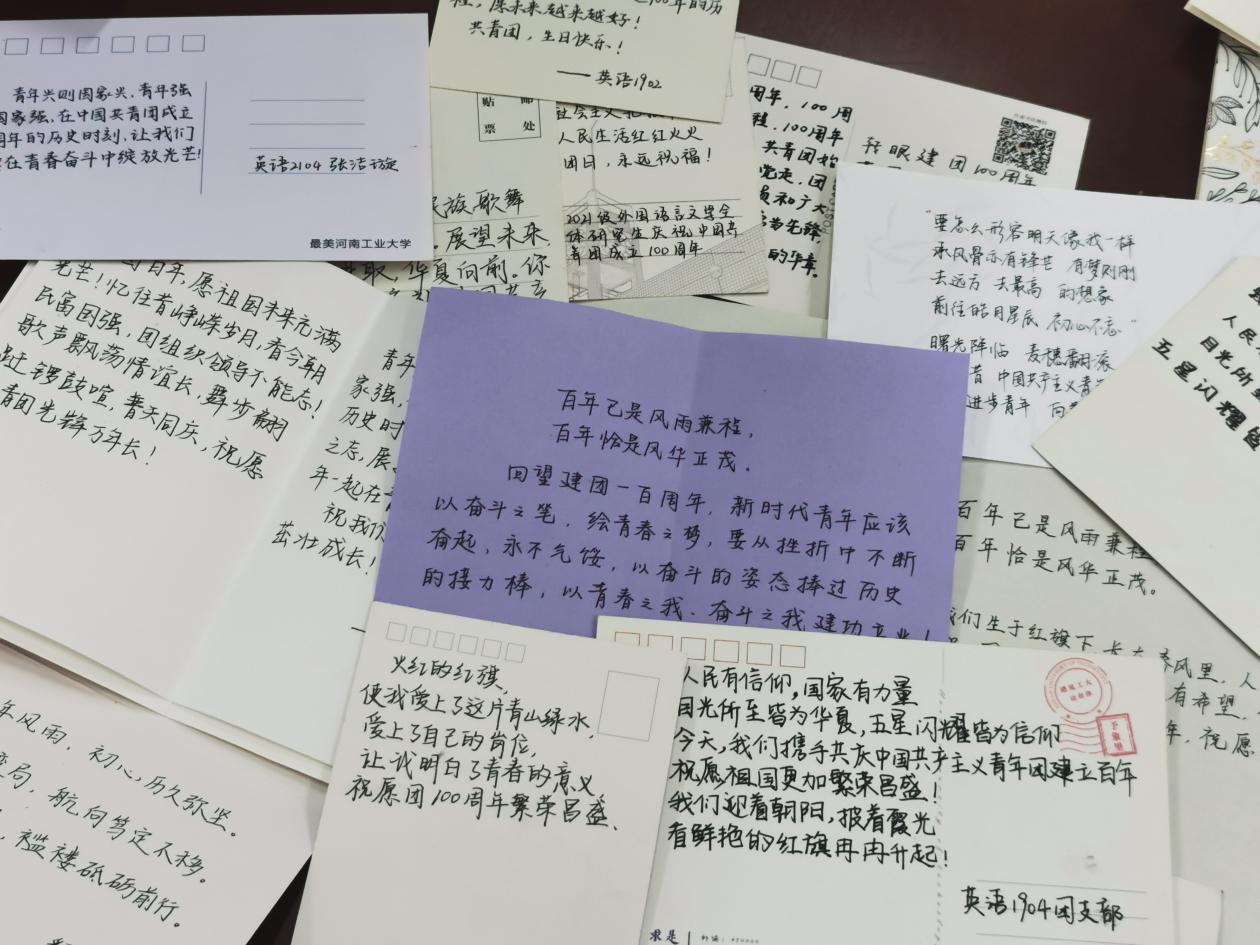 青年兴则国家兴,青年强
国家强,在中国共青团成立
周年的历史时刻,让我们
在青春奋斗中绽放光芒!
英语2104 张洁
最美河南工业大学
程,愿未来越来越好!
共青团,生日快乐!
——英语1902
贴 邮
票 处
人民生活红红火火
团日,永远祝福!
2021级外国语言文学全
体研究生庆祝中国共
青团成立100周年
民族歌舞
展望未来,
华夏向前。你
周年,100周
程,100周年
共青团始
党走,团
员和广大
为先锋,
的华章。
转眼建团100周年
“要怎么形容明天像我一样
承风骨亦有锋芒 有梦则刚
去远方 去最高 的想象
前往皓月星辰 初心不忘”
曙光降临 麦穗翻滚
中国共产主义青
进步青年 向
人民
目光所至
五星闪耀皆
百年,愿祖国未来元满
光芒!忆往昔峥嵘岁月,看今朝
民富国强,团组织领导不能忘!
歌声飘荡情谊长,舞步翩
跹锣鼓喧,普天同庆,祝愿
青团光辉万年长!
青年
家强,
历史时
之志,展
年一起在
祝我们
茁壮成长!
百年已是风雨兼程,
百年恰是风华正茂。
回望建团一百周年,新时代青年应该
以奋斗之笔,绘青春之梦,要从挫折中不断
奋起,永不气馁,以奋斗的姿态捧过历史
的接力棒,以青春之我、奋斗之我建功立业!
百年已是风雨兼程
百年恰是风华正茂。
我们生于红旗下,长在春风里,人
有希望,
年,祝愿
年风雨,初心历久弥坚。
变局,航向笃定不移。
褴褛砥砺前行。
火红的红旗,
使我爱上了这片青山绿水,
爱上了自己的岗位,
让我明白了青春的意义
祝愿团100周年繁荣昌盛.
人民有信仰,国家有力量
目光所至皆为华夏,五星闪耀皆为信仰
今天,我们携手共庆中国共产主义青年团建立百年
祝愿祖国更加繁荣昌盛!
我们迎着朝阳,披着霞光
看鲜艳的红旗冉冉升起!
英语1904团支部
求是